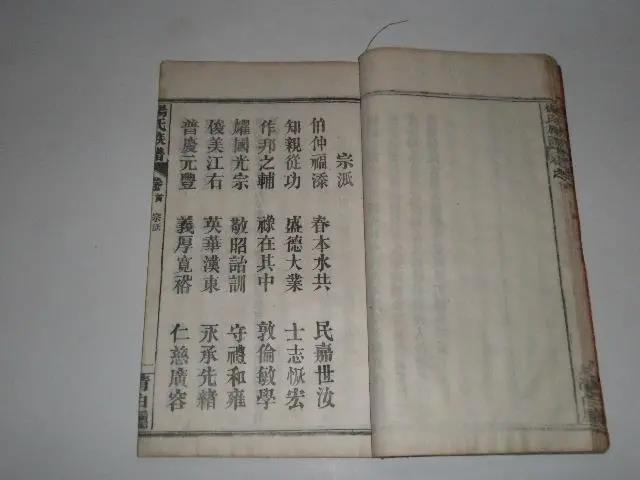 宗派
伯仲福添 春本水共 民嘉世汝
知親從功 盛德大業 士志恢宏
作邦之輔 祿在其中 敦倫敏學
耀國光宗 敬昭詒訓 守禮和雍
俊美江右 英華漢東 永承先緒
普慶元豐 義厚寬裕 仁慈廣容
楊氏族譜 卷首 宗派